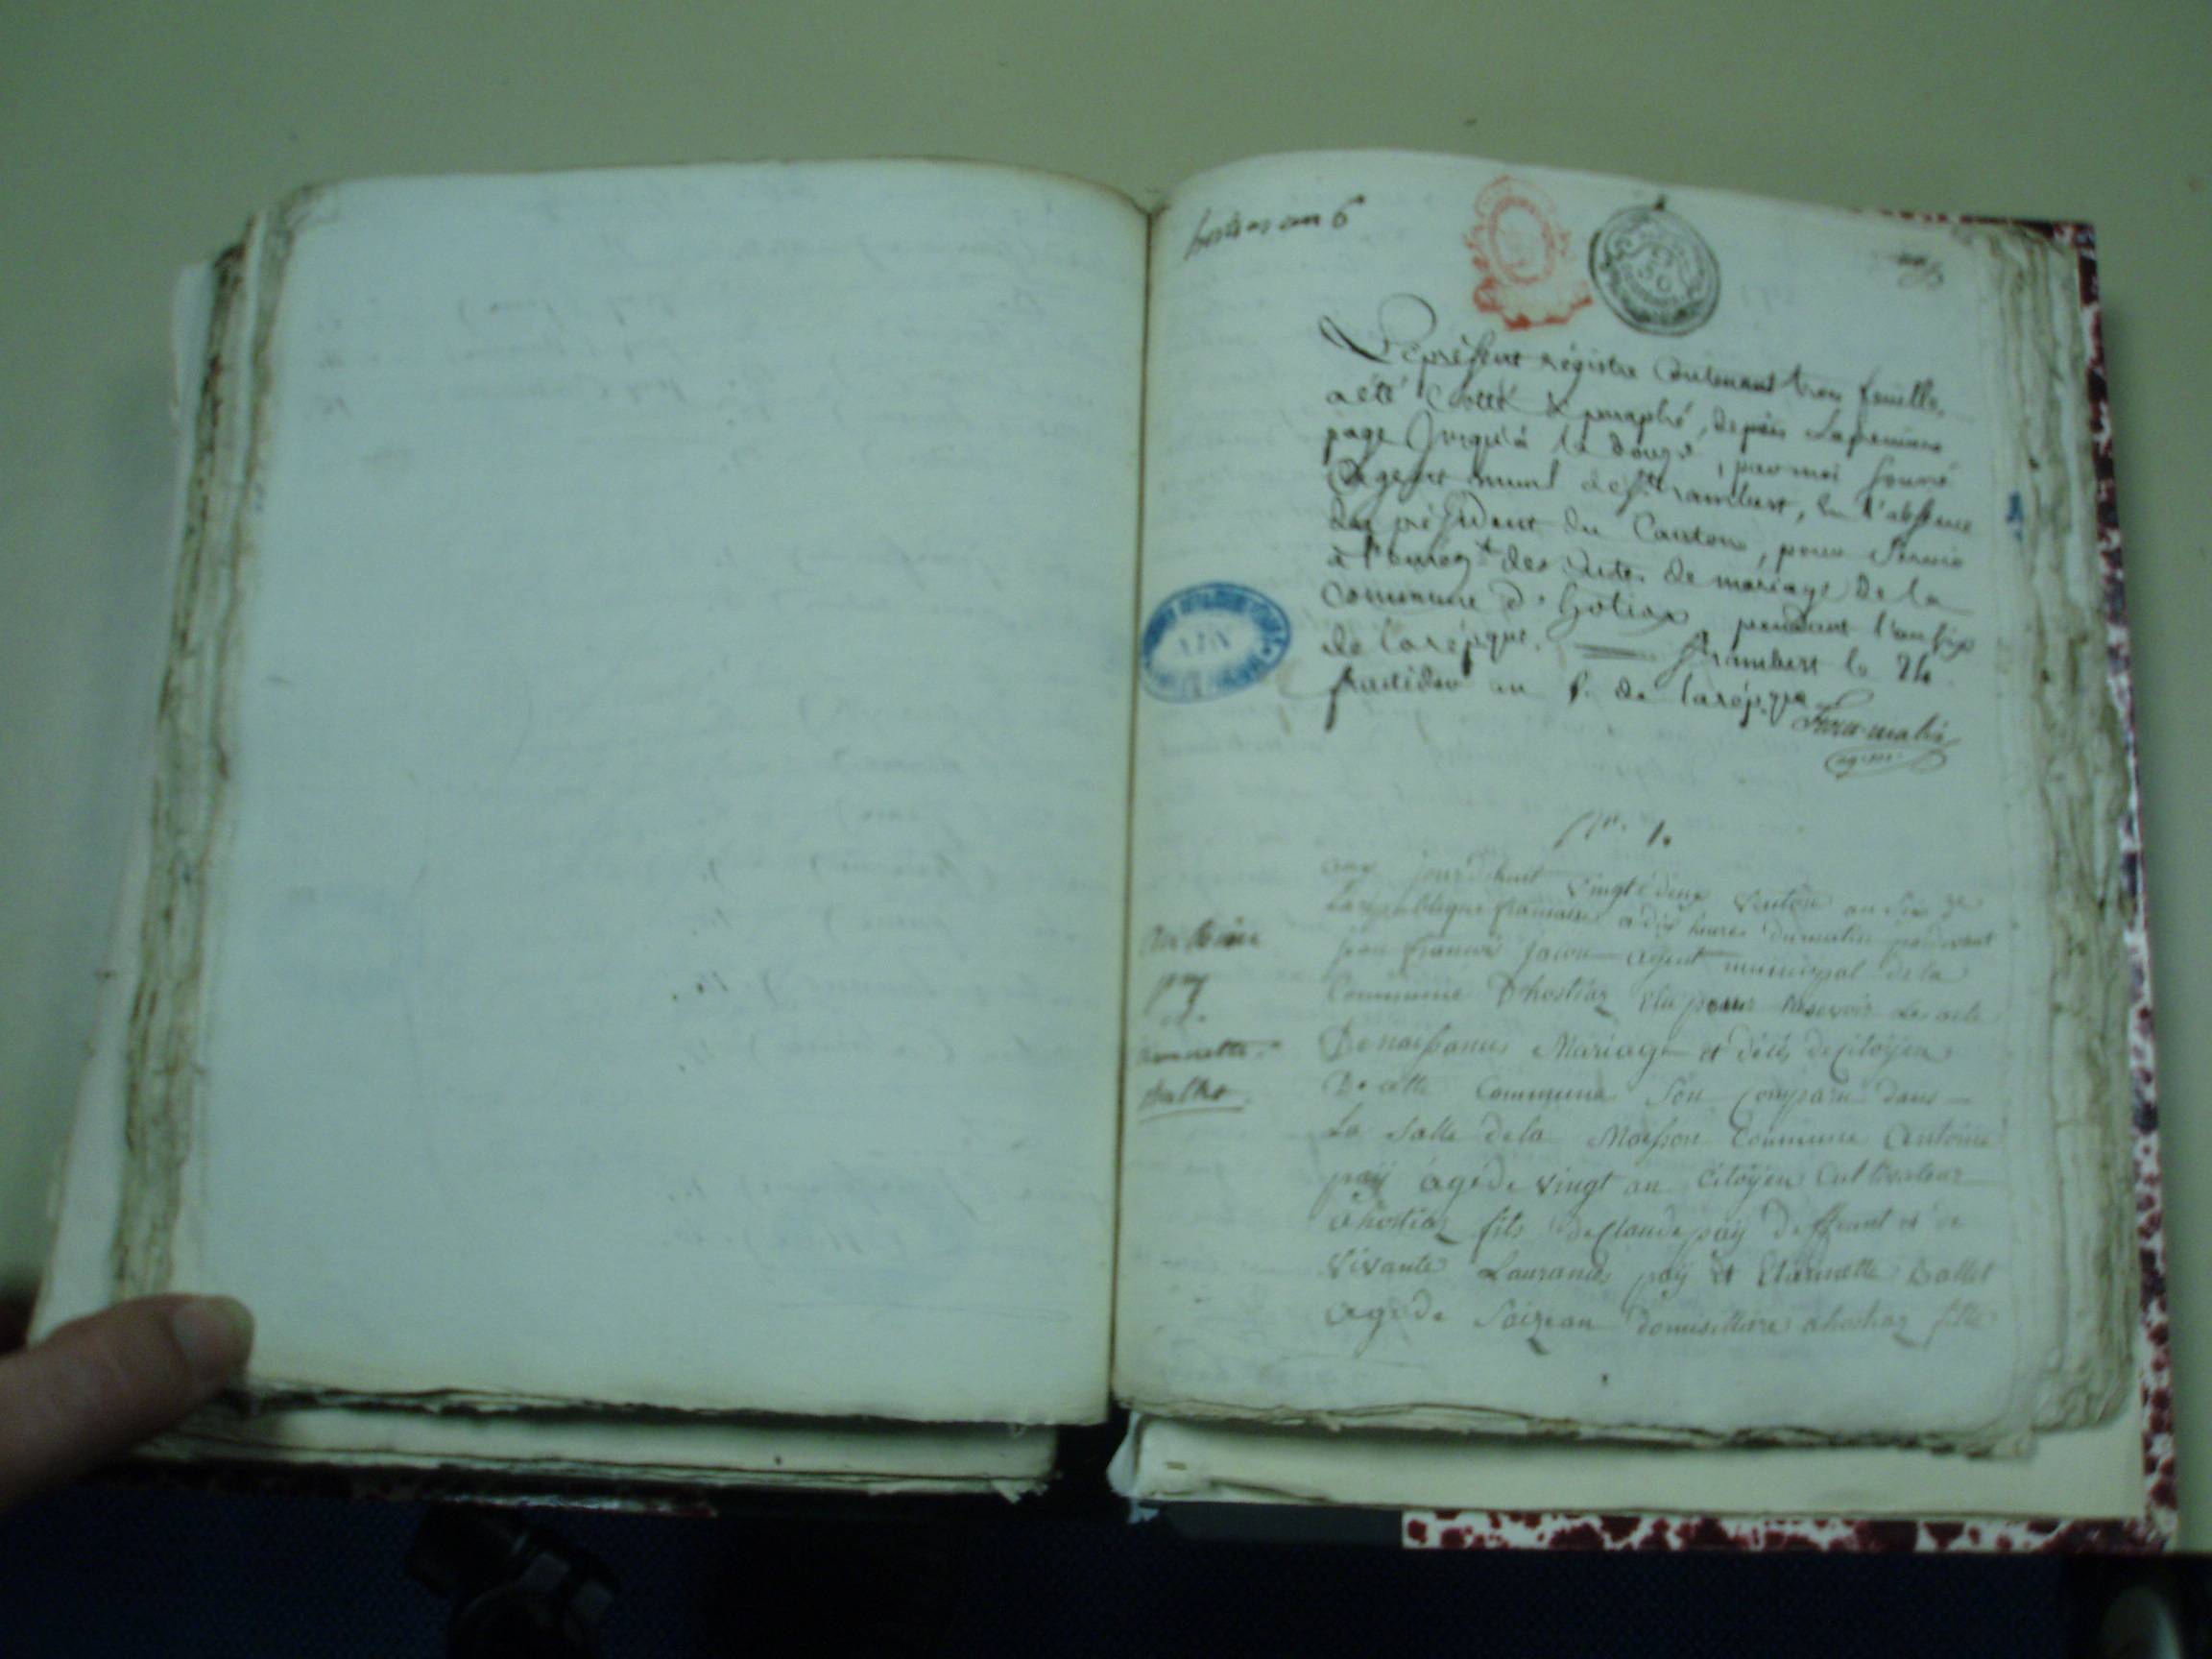 hostias an 6
Le présent régistre Contenant trois feuille,
a été Cotté & paraphé, depuis la premiere
page Jusqu'à la douze, par moi
agent munl de St rambert, en l'absence
du président du Canton, pour Servir
à l'enregt des Actes de mariage de la
Commune d'hotiax pendant l'an six
de la répque. St rambert le 24
fructidor an 5. de la répque
agent
No. 1.
aux jourdhuit vingt deux ventôse an Six de
La republique francaise a dix heures du matin pardevant
jean francois jacou agent municipal de la
Commune D'hostiaz Elu pour Resevoir Les acte
De naissances Mariage et décès de Citoÿen
De cette Commune Son Comparu dans
La Salle de la Maisson Commune Antoine
paÿ agé de vingt an Citoÿen Cultivateur
a hostiaz fils de Claude paÿ deffeunt et de
vivante Laurande paÿ et Etiennette Ballet
agé de Saize an domisilliére a hostiaz fille
Antoine
paÿ
et
Ballet
AIN